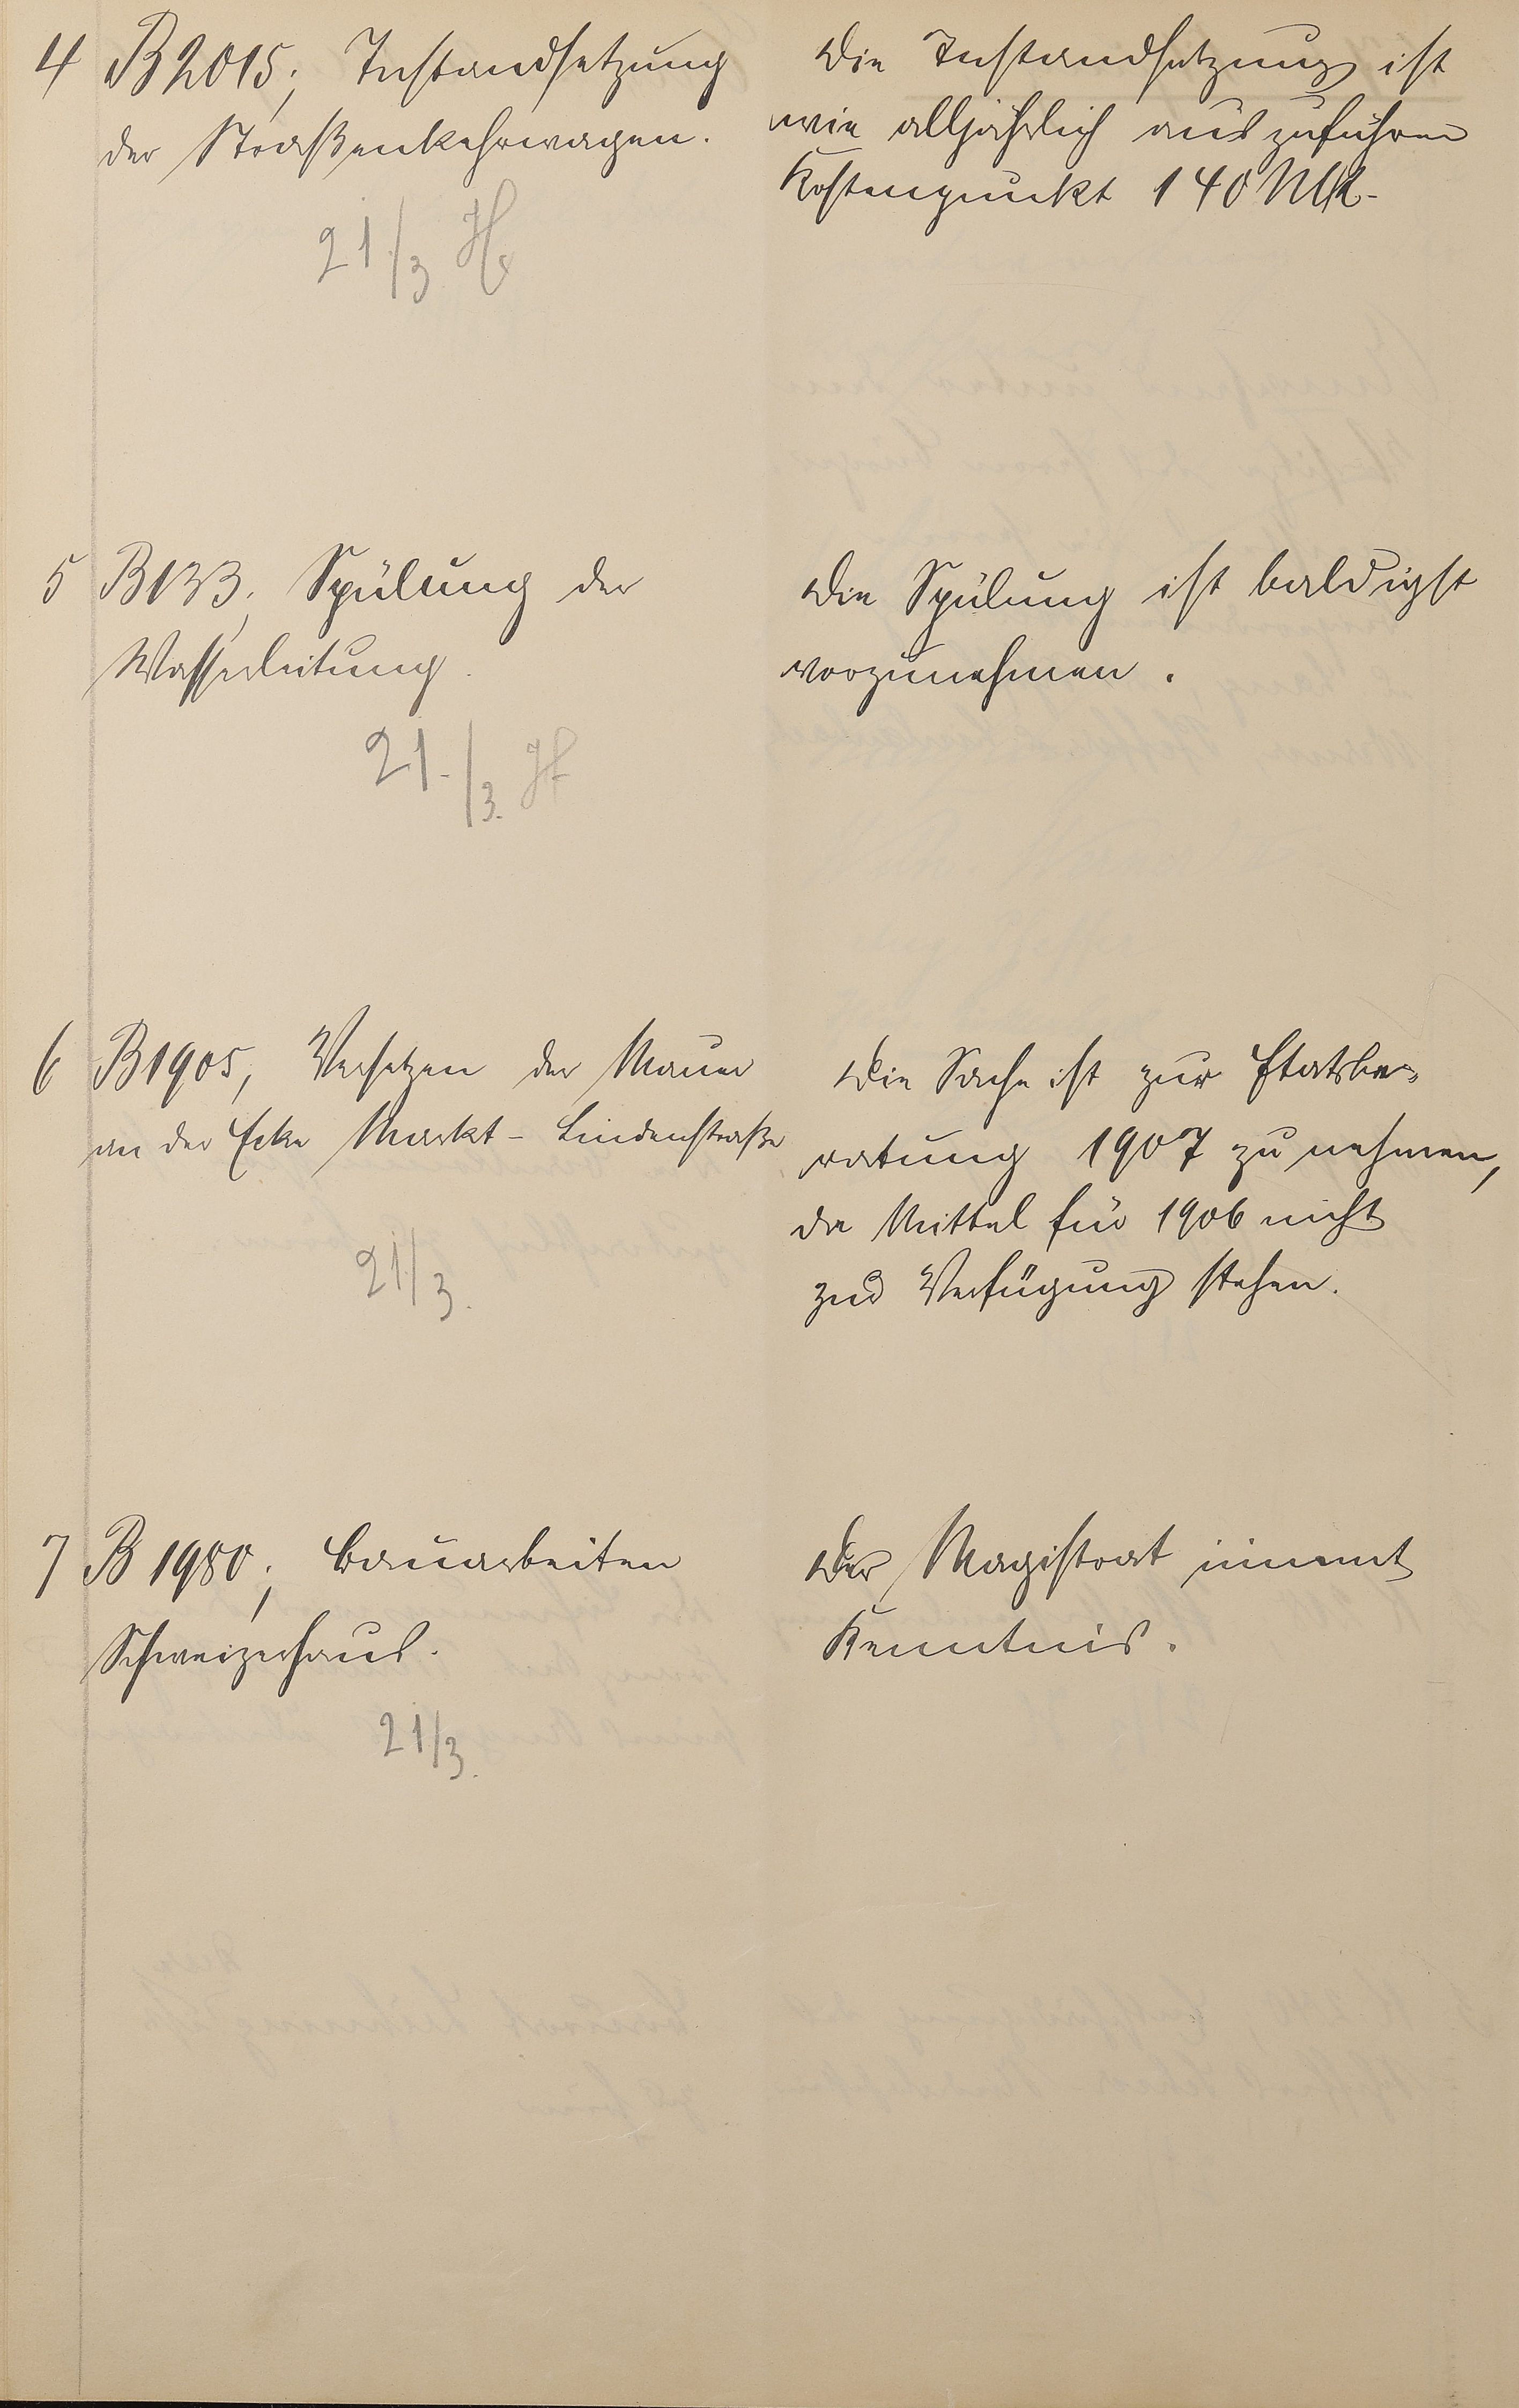 4 B 2015, Instandsetzung
der Straßenkehrwagen.
21/3 H
Die Instandsetzung ist
wie alljährlich auszuführen
Kostenpunkt 140 Mk.
5 B 133, Spülung der
Wasserleitung.
21./3. H
Die Spülung ist baldigst
vorzunehmen.
6 B 1905, Versetzen der Mauer
an der Ecke Markt- Lindenstraße
21/3.
Die Sache ist zur Etatsbe-
ratung 1907 zu nehmen,
da Mittel für 1906 nicht
zur Verfügung stehen.
7 B 1980, Bauarbeiten
Schweizerhaus.
21/3.
Der Magistrat nimmt
Kenntnis.